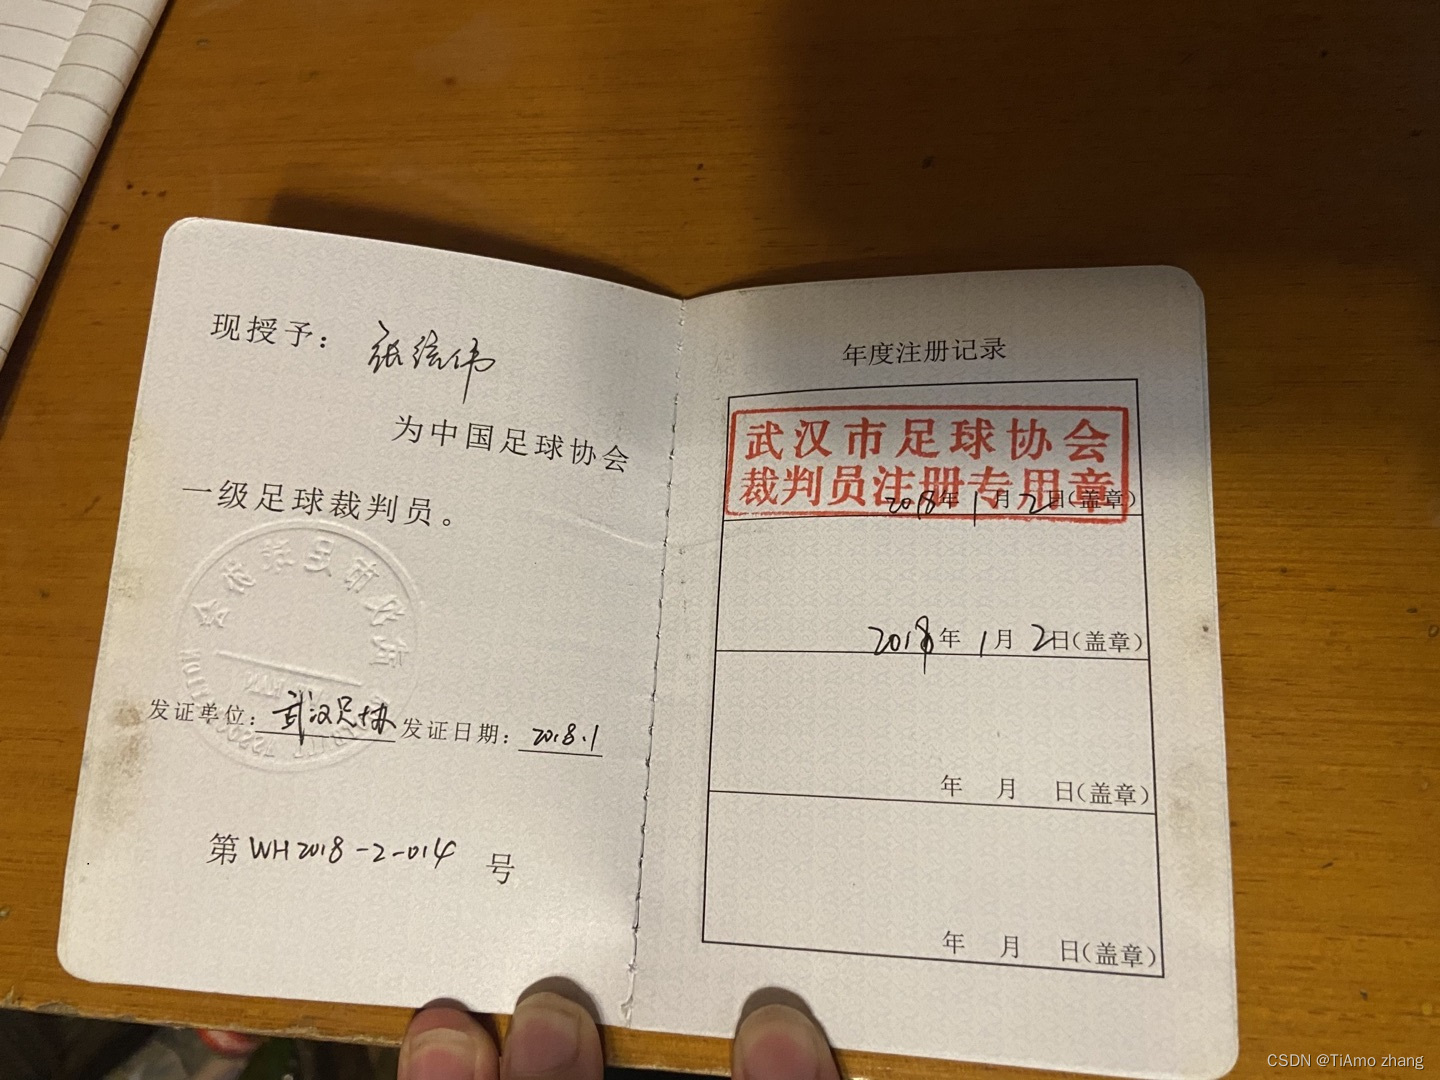 现授予： 张绘伟
为中国足球协会
一级足球裁判员。
发证单位：武汉足协 发证日期：2018.1
第 WH2018-2-014 号
年度注册记录
武汉市足球协会
裁判员注册专用章
2018年 1月 2日（盖章）
2018年 1月 2日（盖章）
年 月 日（盖章）
年 月 日（盖章）
CSDN @TiAmo zhang